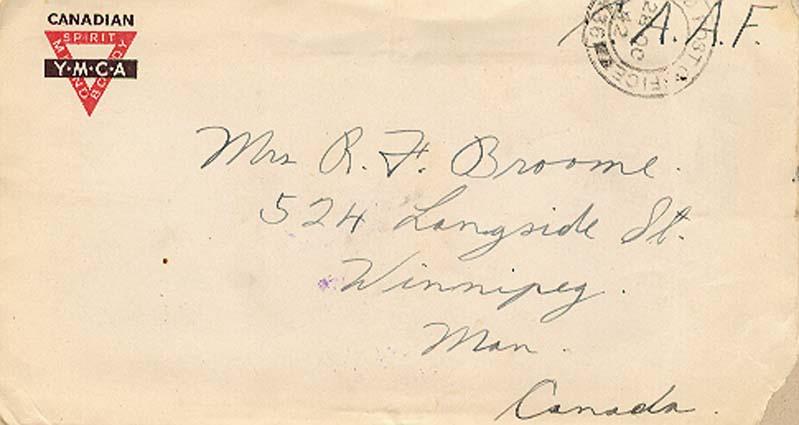 CANADIAN
SPIRIT
MIND BODY
Y·M·C·A
A. A. F.
POST OFFICE
28 OC
42
Mrs R. F. Broome.
524 Langside St.
Winnipeg.
Man.
Canada.